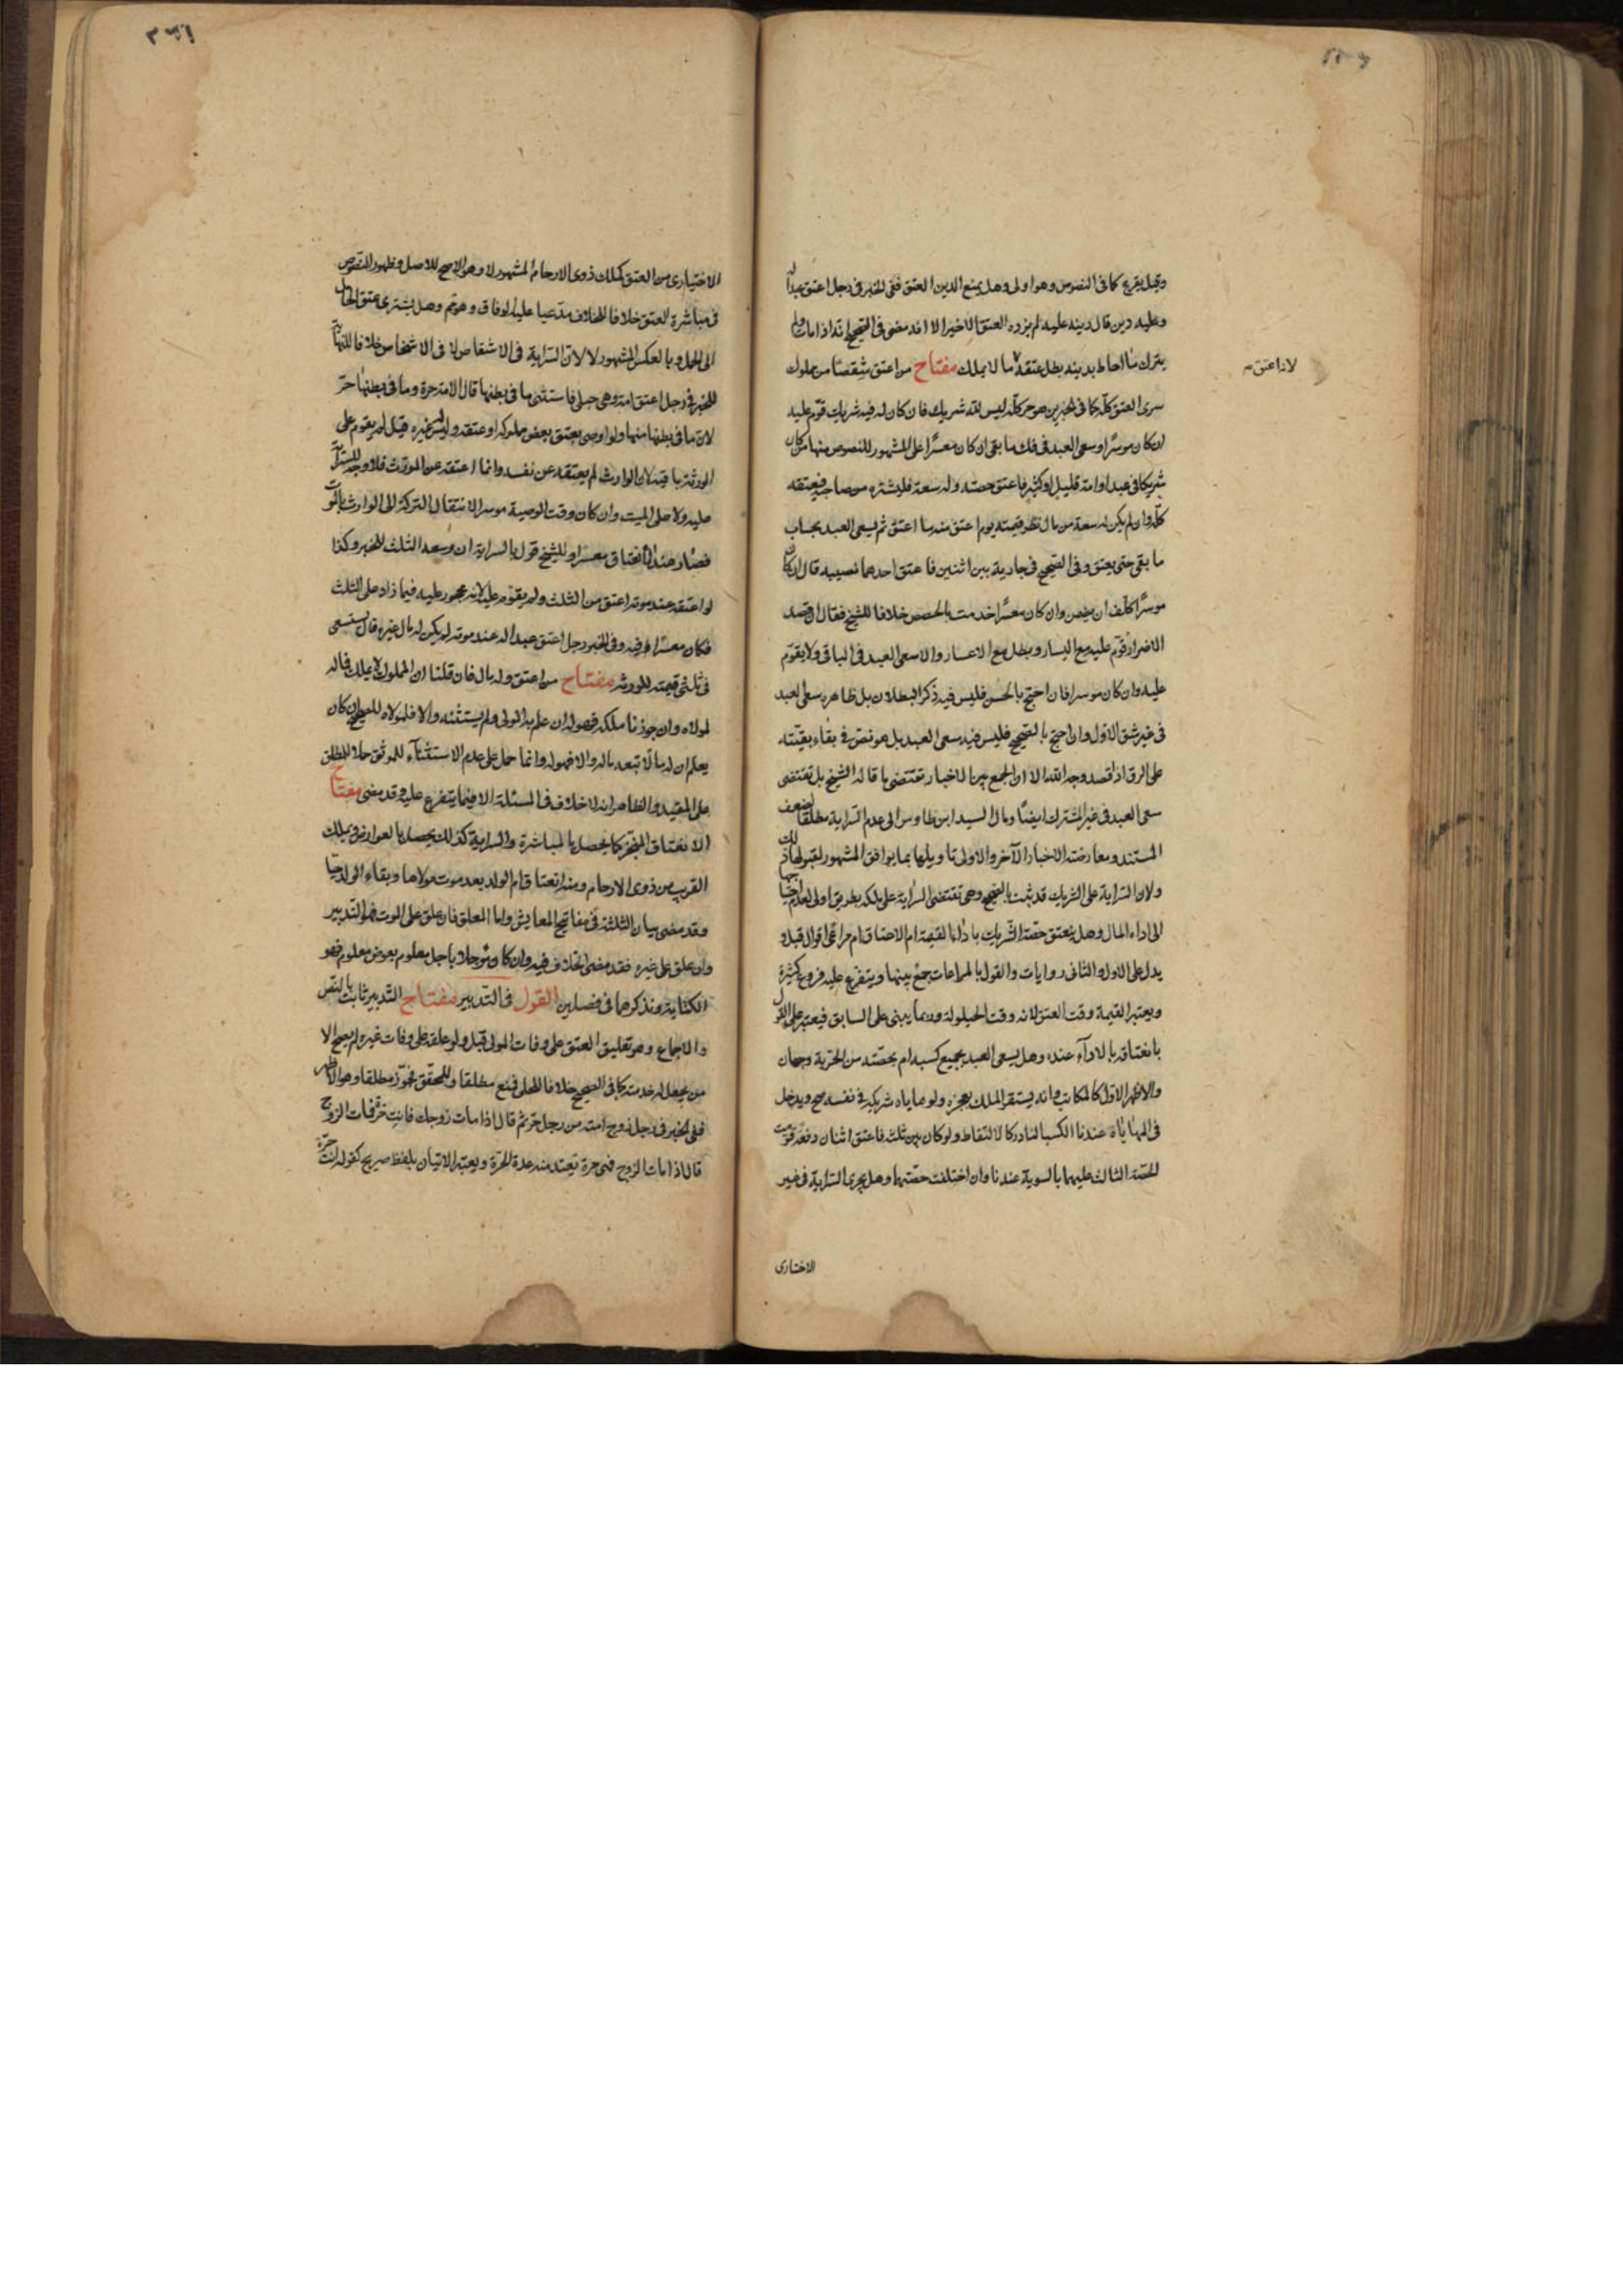 وقيل يقرع كما فى النصوص وهو اولى وهل يمنع الدين العتق ففى الخبر فى رجل اعتق عبدا له
وعليه دين قال دينه عليه لم يزده العتق الا خيرا الا انه مضى فى الصحيح انه اذا مات ولم
يترك ما احاط بدينه بطل عتقه ما لا يملك مفتاح من اعتق شقصا من مملوك
لانه اعتق م
سرى العتق كله كما فى الخبرين هو حر كله ليس لله شريك فان كان له فيه شريك قوم عليه
ان كان موسرا وسعى العبد فى فك ما بقى ان كان معسرا على المشهور للنصوص منها من كان
شريكا فى عبد او امة قليل او كثير فاعتق حصته وله سعة فليشتره من صاحبه فيعتقه
كله وان لم يكن له سعة من مال نظر قيمته يوم اعتق منه ما اعتق ثم يسعى العبد بحساب
ما بقى حتى يعتق وفى الصحيح فى جارية بين اثنين فاعتق احدهما نصيبه قال ان كان
موسرا كلف ان يضمن وان كان معسرا خدمت بالحصص خلافا للشيخ فقال ان قصد
الاضرار قوم عليه مع اليسار وبطل مع الاعسار والا سعى العبد فى الباقى ولا يقوم
عليه وان كان موسرا فان احتج بالحسن فليس فيه ذكر البطلان بل ظاهره سعى العبد
فى غير شق الاول وان احتج بالصحيح فليس فيه سعى العبد بل هو نص فى بقاء بقيته
على الرق اذا قصد وجه الله الا ان الجمع بين الاخبار تقتضى ما قاله الشيخ بل تقتضى
سعى العبد فى غير المشترك ايضا ومال السيد ابن طاوس الى عدم السراية مطلقا لضعف
المستند ومعارضته الاخبار الآخر والاولى تاويلها بما يوافق المشهور لقبولها ذلك
ولان السراية على الشريك قد ثبت بالصحيح وهى تقتضى السراية على ملكه بطريق اولى لعدم احتياجها
الى اداء المال وهل ينعتق حصة الشريك باداء القيمة ام الاعتاق ام مراعى اقوال قيل و
يدل على الاول والثانى روايات والقول بالمراعات جمع بينها ويتفرع عليه فروع كثيرة
ويعتبر القيمة وقت العتق لانه وقت الحيلولة وربما يبنى على السابق فيعتبر على القول
بانعتاقه بالاداء عنده وهل يسعى العبد بجميع كسبه ام بحصته من الحرية وجهان
والاظهر الاول كالمكاتب وانه يستقر الملك بعجزه ولو هاياه شريكه فى نفسه صح ويدخل
فى المهاياة عندنا الكسب النادر كالالتقاط ولو كان بين ثلثة فاعتق اثنان دفعة قومت
الحصة الثالث عليهما بالسوية عندنا وان اختلفت حصتهما وهل يجرى السراية فى غير
الاختيارى
الاختيارى من العتق كملك ذوى الارحام المشهور لا وهو الاصح للاصل وظهور النصوص
فى مباشرة العتق خلافا للخلاف مدعيا عليه الوفاق وهو تم وهل يسرى عتق الحامل
الى الحمل وبالعكس المشهور لا لان السراية فى الاشقاص لا فى الاشخاص خلافا للنهاية
للخبر فى رجل اعتق امة وهى حبلى فاستثنى ما فى بطنها قال الامة حرة وما فى بطنها حر
لان ما فى بطنها منها ولو اوصى بعتق بعض مملوكه او عتقه وليس غيره قيل لم يقوم على
الورثة باقيه لان الوارث لم يعتقه عن نفسه وانما اعتقه عن المورث فلا وجه للسراية
عليه ولا على الميت وان كان وقت الوصية موسرا لانتقال التركة الى الوارث بالموت
فصار عند الانعتاق معسرا وللشيخ قول بالسراية ان وسعه الثلث للخبر وكذا
لو اعتقه عند موته اعتق من الثلث ولم يقوم عليه لانه محجور عليه فيما زاد على الثلث
فكان معسرا فيه وفى الخبر رجل اعتق عبدا له عند موته لم يكن له مال غيره قال يستسعى
فى ثلثى قيمته للورثة مفتاح من اعتق وله مال فان قلنا ان المملوك لا يملك فماله
لمولاه وان جوزنا ملكه فهو له ان علم به المولى ولم يستثنه والا فلمولاه للصحيح ان كان
يعلم ان له مالا تبعه ماله والا فهو له وانما حمل على عدم الاستثناء للموثق حملا للمطلق
على المقيد والظاهر انه لا خلاف فى المسئلة الا فيما يتفرع عليه وقد مضى مفتاح
الانعتاق المنجز كما يحصل بالمباشرة والسراية كذلك يحصل بالعوارض ويملك
القريب من ذوى الارحام ومنه انعتاق ام الولد بعد موت مولاها وبقاء الولد حيا
وقد مضى بيان الثلثة فى مفاتيح المعايش واما المعلق فان علق على الموت فهو التدبير
وان علق على غيره فقد مضى الخلاف فيه وان كان مؤجلا باجل معلوم بعوض معلوم فهو
الكتابة ونذكرهما فى فصلين القول فى التدبير مفتاح التدبير ثابت بالنص
والاجماع وهو تعليق العتق على وفات المولى قيل ولو علقه على وفات غيره لم يصح الا
من يجعل له خدمته كما فى الصحيح خلافا للحلى فمنع مطلقا وللمحقق فجوز مطلقا وهو الاظهر
ففى الخبر فى رجل زوج امته من رجل حر ثم قال اذا مات زوجك فانت حرة فمات الزوج
قال اذا مات الزوج فهى حرة تعتد منه عدة الحرة ويعتبر الاتيان بلفظ صريح كقوله انت حرة